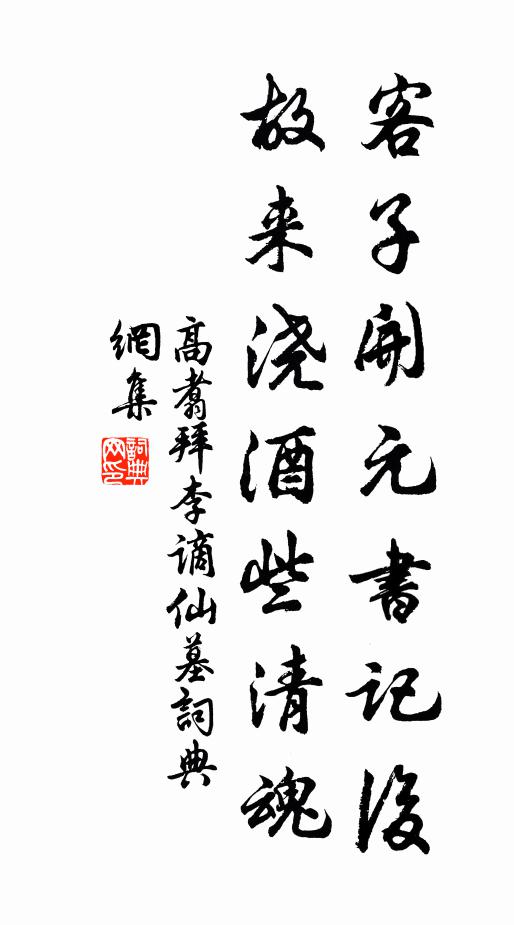 客子開元書記後
故来浇酒些清魂
高翥拜李谪仙墓詞典
網集
詞典网印